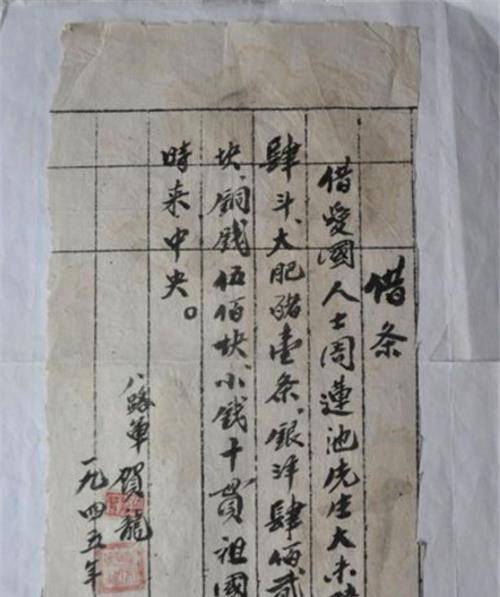 借条
借愛國人士周蓮池先生大米
肆斗、大肥豬壹条、銀洋肆佰貳
块、銅錢伍佰块、小钱十貫祖國
時来中央。
八路軍 賀龍
一九四五年